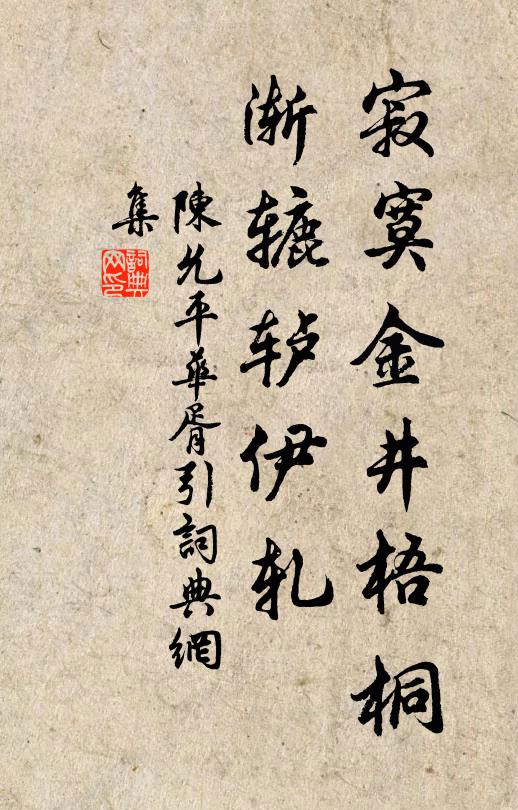 寂寞金井梧桐
渐辘轳伊轧
陳允平華胥引詞典網
集
詞典网印